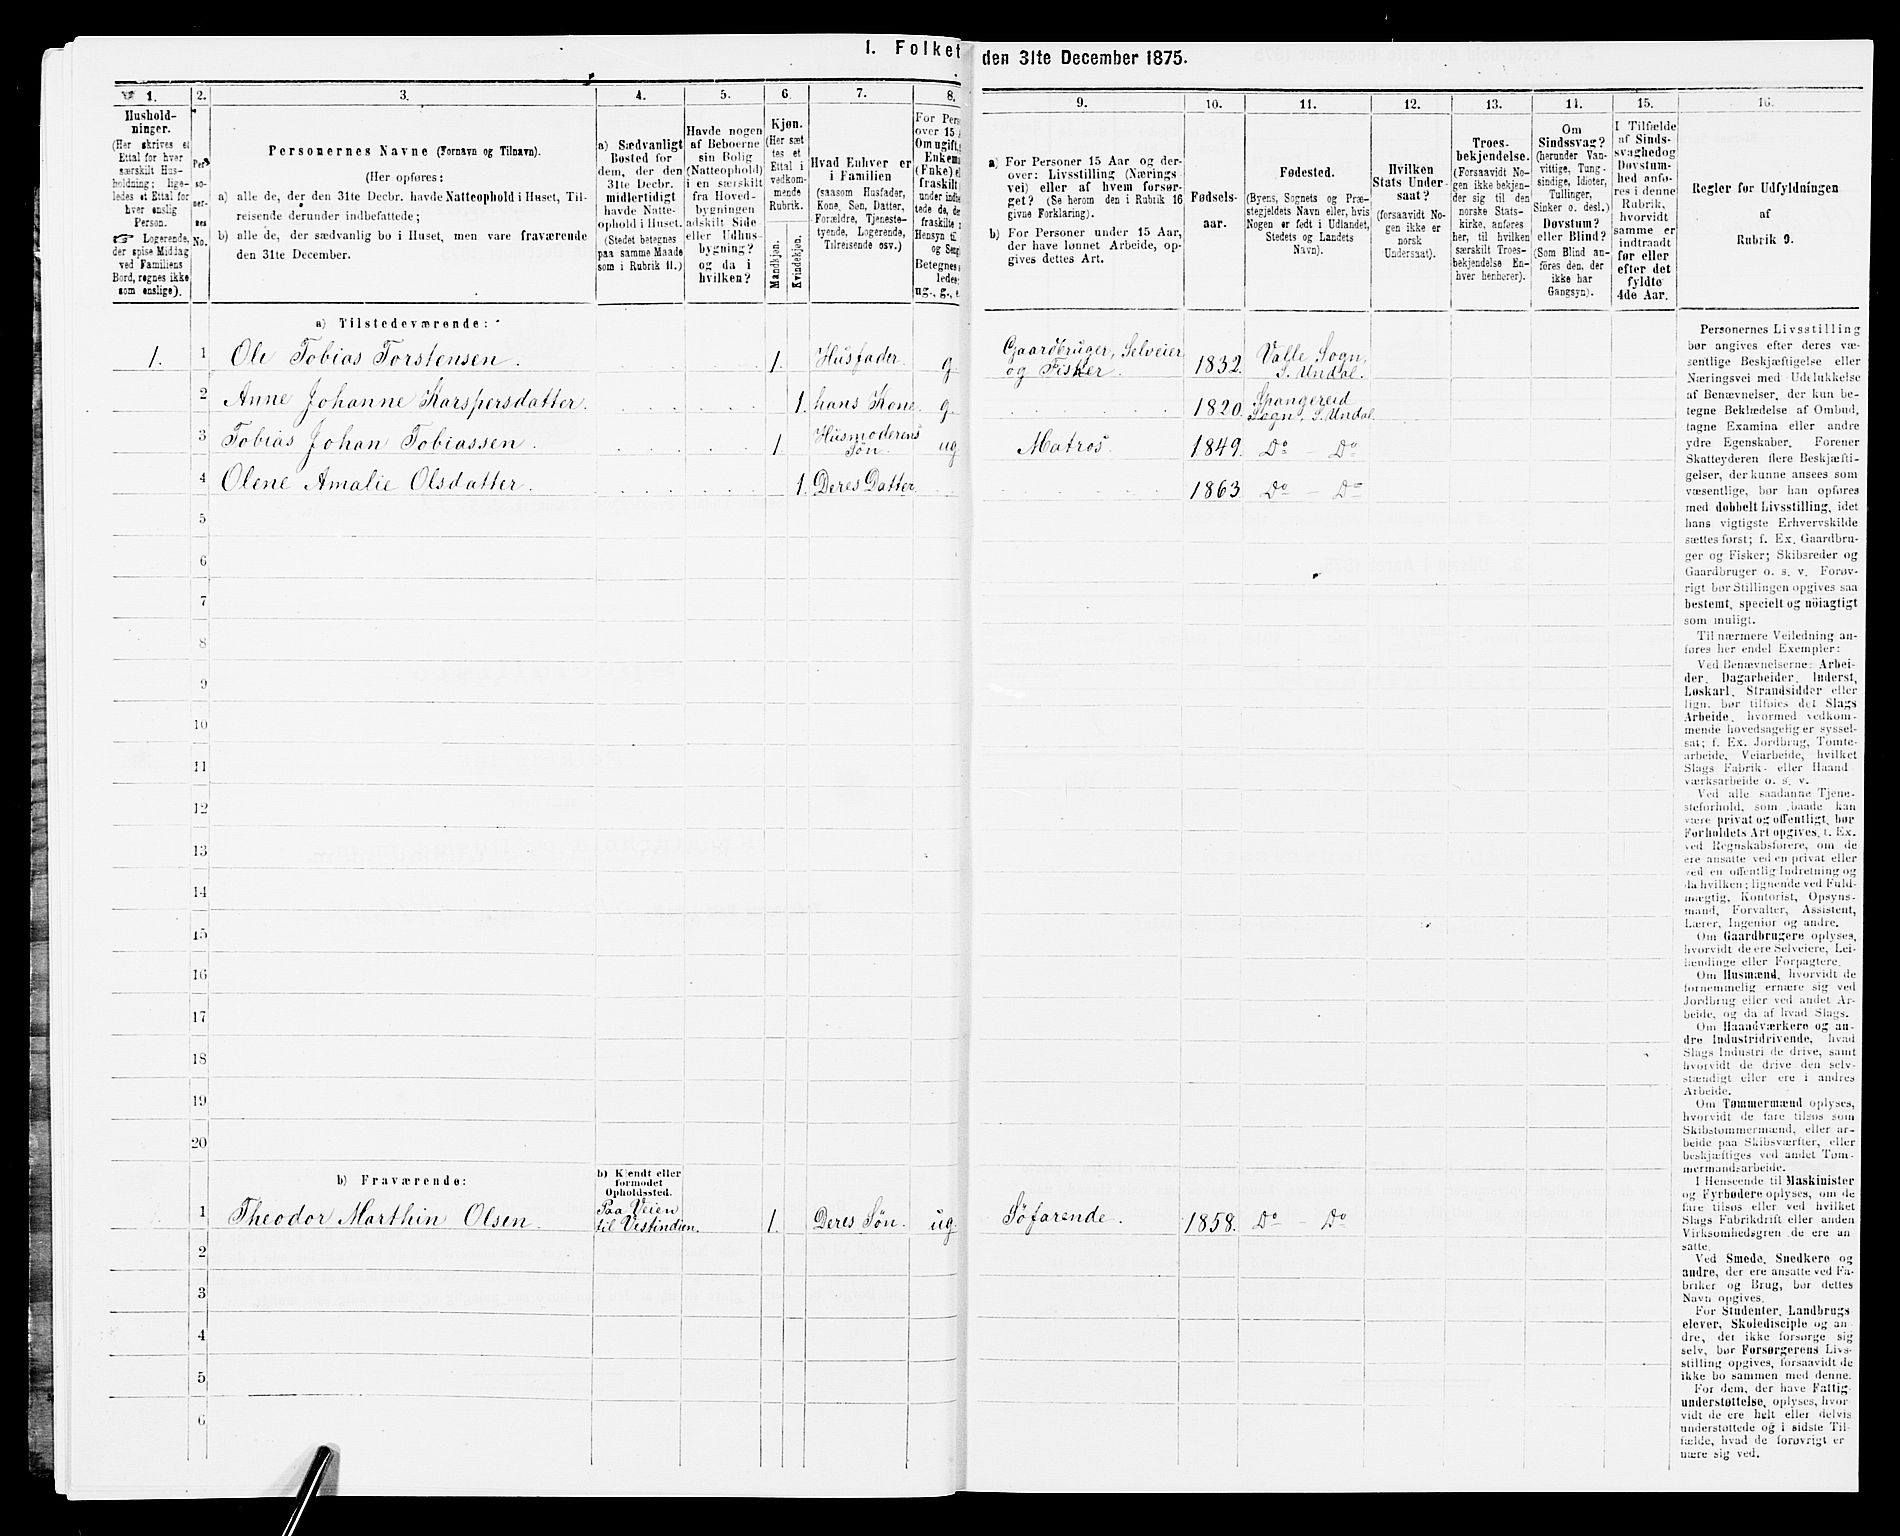 1. Folket
den 31te December 1875.
1.
2.
3.
4.
5.
6.
7.
8.
9.
10.
11.
12.
13.
14.
15.
16.
Hushold-
ninger.
(Her skrives et
Ettal for hver
særskilt Hus-
holdning; lige-
ledes et Ettal for
hver enslig
Person.
☞ Logerende,
der spise Middag
ved Familiens
Bord, regnes ikke
som enslige).
Per-
so-
ner-
nes
No.
Personernes Navne (Fornavn og Tilnavn).
(Her opføres:
a) alle de, der den 31te Decbr. havde Natteophold i Huset, Til-
reisende derunder indbefattede;
b) alle de, der sædvanlig bo i Huset, men vare fraværende
den 31te December.
a) Sædvanligt
Bosted for
dem, der den
31te Decbr.
midlertidigt
havde Natte-
ophold i Huset.
(Stedet betegnes
paa samme Maade
som i Rubrik 11.)
Havde nogen
af Beboerne
sin Bolig
(Natteophold)
i en særskilt
fra Hoved-
bygningen
adskilt Side-
eller Udhus-
bygning?
og da i
hvilken?
Kjøn.
(Her sæt-
tes et
Ettal i
vedkom-
mende
Rubrik.
Mandkjøn.
Kvindekjøn.
Hvad Enhver er
i Familien
(saasom Husfader,
Kone, Søn, Datter,
Forældre, Tjeneste-
tyende, Logerende,
Tilreisende osv.)
For Pers
over 15 A
Om ugift,
Enkema
(Enke) el
fraskilt
under indbe
tede de, de
fraskilte
Hensyn til
og Seng
Betegnes s
ledes:
ug., g., e.
a) For Personer 15 Aar og der-
over: Livsstilling (Nærings-
vei) eller af hvem forsør-
get? (Se herom den i Rubrik 16
givne Forklaring).
b) For Personer under 15 Aar,
der have lønnet Arbeide, op-
gives dettes Art.
Fødsels-
aar.
Fødested.
(Byens, Sognets og Præ-
stegjeldets Navn eller, hvis
Nogen er født i Udlandet,
Stedets og Landets
Navn).
Hvilken
Stats Under-
saat?
(forsaavidt No-
gen ikke er
norsk
Undersaat).
Troes-
bekjendelse.
(Forsaavidt No-
gen ikke bekjen-
der sig til den
norske Stats-
kirke, anføres
her, til hvilken
særskilt Troes-
bekjendelse En-
hver henhører).
Om
Sindssvag?
(herunder Van-
vittige, Tung-
sindige, Idioter,
Tullinger,
Sinker o. desl.)
Døvstum?
eller Blind?
(Som Blind an-
føres den, der
ikke har
Gangsyn).
I Tilfælde
af Sinds-
svaghed og
Døvstum-
hed anfø-
res i denne
Rubrik,
hvorvidt
samme er
indtraadt
før eller
efter det
fyldte
4de Aar.
Regler for Udfyldningen
af
Rubrik 9.
a) Tilstedeværende:
1. 1 Ole Tobias Torstensen. 1. Husfader. g. Gaardbruger, Selveier og Fisker. 1832. Valle Sogn, S. Undal.
2 Anne Johanne Karspersdatter. 1. hans Kone. g. 1820. Spangereid Sogn, S. Undal.
3 Tobias Johan Tobiassen. 1. Husmoderens Søn. ug Matros. 1849. Do – Do
4 Olene Amalie Olsdatter. 1. Deres Datter. 1863 Do – Do
5
6
7
8
9
10
11
12
13
14
15
16
17
18
19
20
b) Fraværende:
b) Kjendt eller
formodet
Opholdssted.
1 Theodor Marthin Olsen. Paa Veien til Vestindien. 1. Deres Søn. ug. Söfarende. 1858. Do – Do
2
3
4
5
6
Personernes Livsstilling
bør angives efter deres væ-
sentlige Beskjæftigelse eller
Næringsvei med Udelukkelse
af Benævnelser, der kun be-
tegne Beklædelse af Ombud,
tagne Examina eller andre
ydre Egenskaber. Forener
Skatteyderen flere Beskjæfti-
gelser, der kunne ansees som
væsentlige, bør han opføres
med dobbelt Livsstilling, idet
hans vigtigste Erhvervskilde
sættes først; f. Ex. Gaardbru-
ger og Fisker; Skibsreder og
Gaardbruger o. s. v. Forøv-
rigt bør Stillingen opgives saa
bestemt, specielt og nöiagtigt
som muligt.
Til nærmere Veiledning an-
føres her endel Exempler:
Ved Benævnelserne: Arbei-
der, Dagarbeider, Inderst,
Løskarl, Strandsidder eller
lign. bør tilføies det Slags
Arbeide, hvormed vedkom-
mende hovedsagelig er syssel-
sat; f. Ex. Jordbrug, Tomte-
arbeide, Veiarbeide, hvilket
Slags Fabrik- eller Haand-
værksarbeide o. s. v.
Ved alle saadanne Tjene-
steforhold, som baade kan
være privat og offentligt, bør
Forholdets Art opgives, f. Ex.
ved Regnskabsførere, om de
ere ansatte ved en privat eller
ved en offentlig Indretning og
da hvilken; lignende ved Fuld-
mægtig, Kontorist, Opsyns-
mand, Forvalter, Assistent,
Lærer, Ingeniør og andre.
Om Gaardbrugere oplyses,
hvorvidt de ere Selveiere, Lei-
lændinge eller Forpagtere.
Om Husmænd, hvorvidt de
fornemmelig ernære sig ved
Jordbrug eller ved andet Ar-
beide, og da af hvad Slags.
Om Haandværkere og an-
dre Industridrivende, hvad
Slags Industri de drive, samt
hvorvidt de drive den selv-
stændigt eller ere i andres
Arbeide.
Om Tømmermænd oplyses,
hvorvidt de fare tilsøs som
Skibstømmermænd, eller ar-
beide paa Skibsværfter, eller
beskjæftiges ved andet Tøm-
mermandsarbeide.
I Henseende til Maskinister
og Fyrbødere oplyses, om de
fare tilsøs eller ved hvilket
Slags Fabrikdrift eller anden
Virksomhedsgren de ere an-
satte.
Ved Smede, Snedkere og
andre, der ere ansatte ved Fa-
briker og Brug, bør dettes
Navn opgives.
For Studenter, Landbrugs-
elever, Skoledisciple og an-
dre, der ikke forsørge sig
selv, bør Forsørgerens Livs-
stilling opgives, forsaavidt de
ikke bo sammen med denne.
For dem, der have Fattig-
understøttelse, oplyses, hvor-
vidt de ere helt eller delvis
understøttede og i sidste Til-
fælde, hvad de forøvrigt er-
nære sig ved.